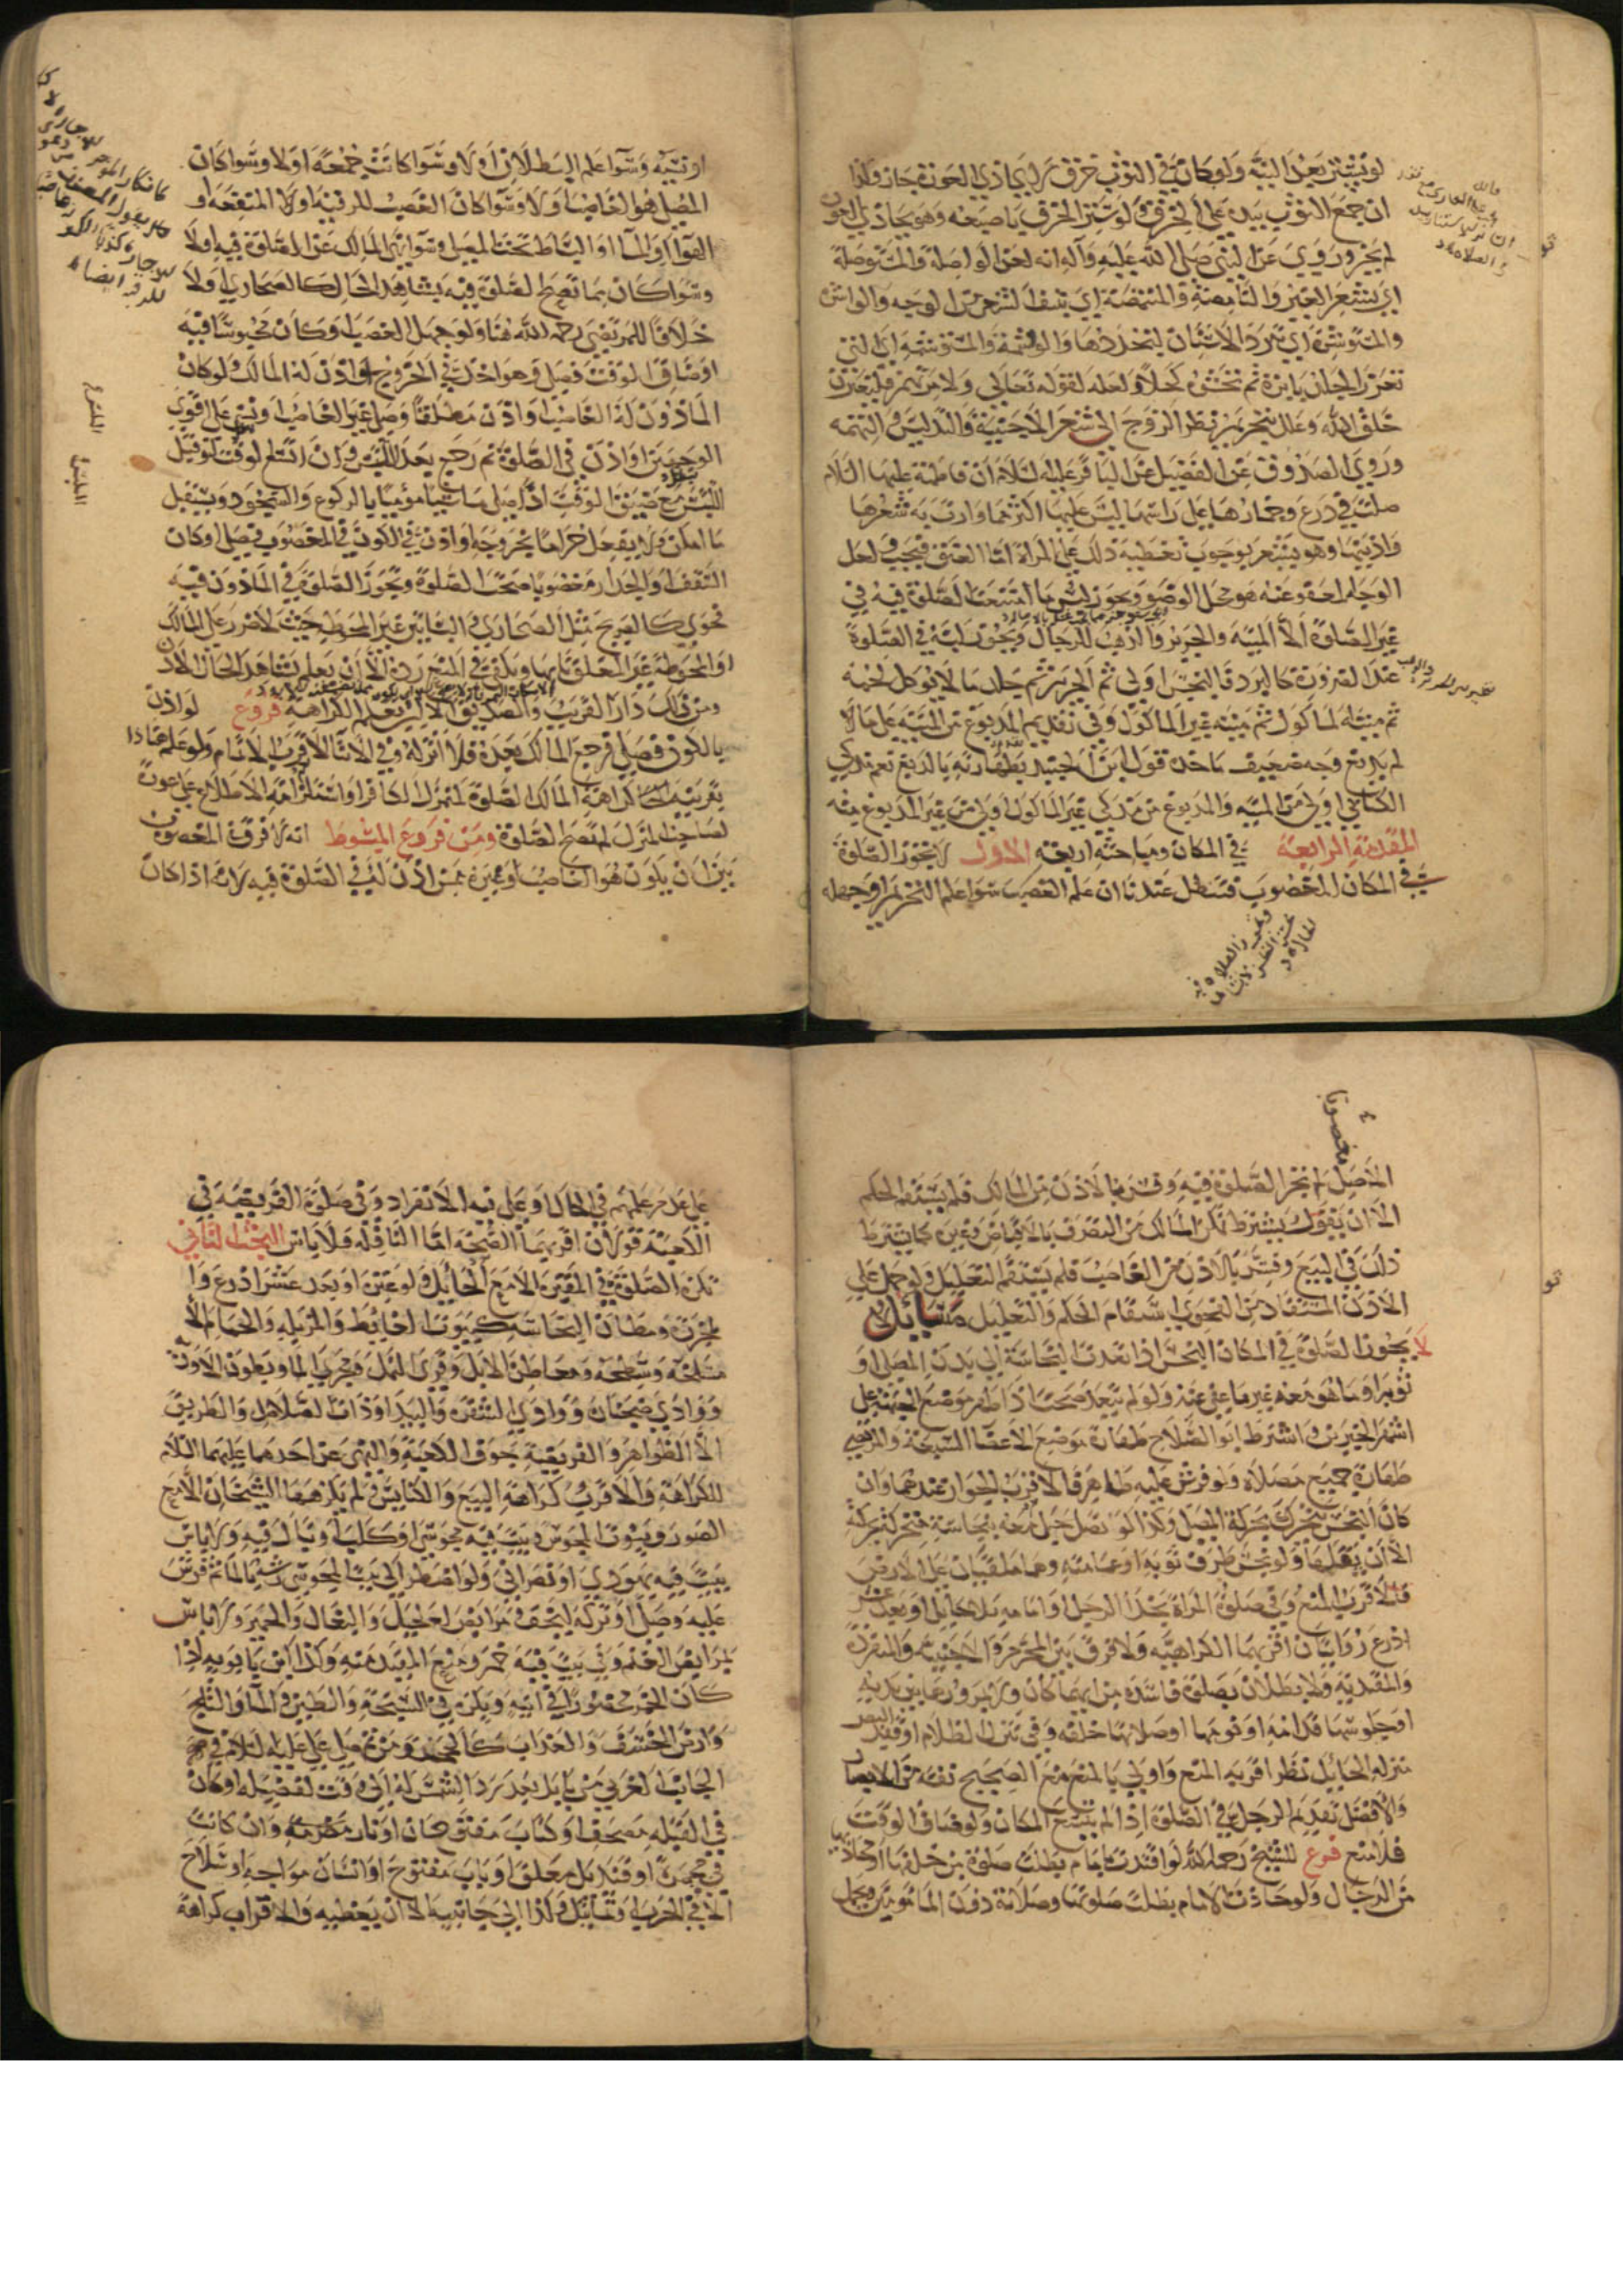 لو تبين بعد النية ولو كان في الثوب خرق لم يحاذي العورة جاز واذا
ان جمع الثوب بيده على الخرق ولو ستر الخرق باصبعه وهو يحاذي العورة
لم يجز وروي عن النبي صلى الله عليه وآله انه لعن الواصلة والمستوصلة
اي بشعر الغير والنامصة والمتنمصة اي بنتف الشعر من الوجه والواشرة
والمتوشرة اي ترد الاسنان لتحددها والواشمة والمستوشمة اي التي
تغرز الجلد بابرة ثم تحشي كحلا ولعله لقوله تعالى ولامرنهم فليغيرن
خلق الله وعلل بتحريم نظر الزوج الى شعر الاجنبية والتدليس والتهمة
وروي الصدوق عن الفضيل عن الباقر عليه السلام ان فاطمة عليها السلام
صلت في درع وخمارها على راسها ليس عليها اكثر مما وارت به شعرها
واذنيها وهو يشعر بوجوب تغطية ذلك على المراة اما العنق فيجب ولعل
الوجه لعفو عنه هو محل الوضو ويجوز لبس ما امتنعت الصلوة فيه في
غير الصلوة الا الميتة والحرير والذهب للرجال ويجوز لبسه في الصلوة
عند الضرورة كالبرد فالنجس اولى ثم الحرير ثم جلد ما لا يوكل لحمه
ثم ميتة الماكول ثم ميتة غير الماكول وفي تقديم المدبوغ من الميتة على ما لا
لم يدبغ وجه ضعيف ماخذه قول ابن الجنيد بطهارته بالدبغ نعم مذكى
الكتابي اولى من الميتة والمدبوغ من مذكي غير الماكول اولى من غير المدبوغ منه
المقدمة الرابعة في المكان ومباحثه اربعة الاول لا يجوز الصلوة
في المكان المغصوب فتبطل عندنا ان علم الغصب سوا علم التحريم او جهله
او نسيه وسوا علم البطلان او لا وسوا كانت جمعة او لا وسوا كان
المصلي هو الغاصب او لا وسوا كان الغصب للرقبة او لا المنفعة او
الهوا او الما او البساط تحت المصلي وسوا نهى المالك عن الصلوة فيه او لا
وسوا كان مما تصح الصلوة فيه بشاهد الحال كالصحاري او لا
خلافا للمرتضى رحمه الله هنا ولو جهل الغصب او كان محبوسا فيه
او ضاق الوقت فصلى وهو اخذ في الخروج او اذن له المالك ولو كان
الماذون له الغاصب او اذن مطلقا وصلى غير الغاصب او نسي على اقوى
الوجهين او اذن في الصلوة ثم رجع بعد التلبس وان اتسع الوقت لو قبل
التلبس مع ضيق الوقت اذا صلى ماشيا موميا بالركوع والسجود ويستقبل
ما امكن ولا يفعل حراما بخروجه او اذن في الكون في المغصوب فصلى او كان
السقف او الجدار مغصوبا صحت الصلوة ويجوز الصلوة في الماذون فيه
فحوي كالصريح مثل الصحاري والبساتين غير المحوطة حيث لا ضرر على المالك
ومن ذلك دار القريب والصديق الا ان يعلم الكراهة فروع لو اذن
بالكون فصلى فرجع المالك بعده فلا اثر له وفي الاثنا الاقرب الاتمام ولو علم
لصاحب المنزل لم تصح الصلوة ومن فروع المبسوط انه لا فرق في المغصوب
بين ان يكون هو الغاصب او غيره ممن اذن له في الصلوة فيه لانه اذا كان
الاصل لم تجز الصلوة فيه وقرن بالاذن من المالك فلم يستقم الحكم
الا ان يقول يشترط تمكن المالك من التصرف بالاقباض وغيره كما يشترط
ذلك في البيع وفسر بالاذن من الغاصب فلم يستقم التعليل ولو حمل على
الاذن المستفاد من الفحوى استقام الحكم والتعليل مسائل
لا يجوز الصلوة في المكان النجس اذا تعدت النجاسة الى بدن المصلي او
ثوبه او ما هو معه غير ما عفي عنه ولو لم يتعد صحت اذا طهر موضع الجبهة على
اشهر الخبرين واشترط ابو الصلاح طهارة موضع الاعضا السبعة والمرتضى
طهارة جميع مصلاه ولو فرش عليه طاهر فالاقرب الجواز عندهما وان
كان النجس يتحرك بحركة المصلي وكذا لو اتصل حبل معه بنجاسة متحركة بحركته
الا ان يقلها ولو نجس طرف ثوبه او عمامته وهما ملقيان على الارض
فالاقرب المنع وفي صلوة المراة بحذا الرجل او امامه بلا حايل او بعد عشر
اذرع روايتان اقربهما الكراهية ولا فرق بين المحرم والاجنبية والمنفردة
والمقتدية ولا بطلان بصلوة فاسدة من ايهما كان ولا بمرورها بين يديه
او جلوسها قدامه او نومها او صلاتها خلفه وفي تنزل الظلام او فقد البصر
منزلة الحايل نظر اقربه المنع واولى بالمنع منع الصحيح نفسه من الابصار
والافضل تقديم الرجل في الصلوة اذا لم يتسع المكان ولو ضاق الوقت
فلا منع فرع للشيخ رحمه الله لو اقتدت بامام بطلت صلوة من خلفها
من الرجال ولو حاذت الامام بطلت صلوتها وصلاته دون المامومين ويحمل
على عدم علمهم في الحال وعلى نية الانفراد وفي صلوة الفريضة في
الكعبة قولان اقربهما الصحة اما النافلة فلا باس البحث الثاني
تكره الصلوة في المقبرة الا مع الحايل ولو عنزة او بعد عشر اذرع وا
لمجزرة ومظان النجاسة كبيوت الغايط والمزبلة والحمام الا
مسلخه وسطحه ومعاطن الابل وقرى النمل ومجرى الما وبطون الاودية
ووادي ضجنان ووادي الشقرة والبيدا وذات الصلاصل والطريق
الا الظواهر والفريضة جوف الكعبة والنهي عن احدهما عليهما السلام
للكراهة والاقرب كراهة البيع والكنايس ولم يكرهها الشيخان الا مع
الصور وبيوت المجوس وبيت فيه مجوسي او كلب او يبال فيه ولا باس
ببيت فيه يهودي او نصراني ولو اضطر الى بيت المجوسي رشه بالما ثم فرش
عليه وصلى او تركه ليجف ومرابض الخيل والبغال والحمير ولا باس
بمرابض الغنم وفي بيت فيه خمر ومنع المفيد منه وكذا ابن بابويه اذا
كان الخمر محرزا في انية ويكره في السبخة والطين والما والثلج
وارض الخسف والعذاب
الجانب الغربي من بابل بعد رد الشمس له الى وقت الفضيلة او كان
في القبلة مصحف او كتاب مفتوحان او نار مضرمة وان كانت
في مجمرة او قنديل معلق او باب مفتوح او انسان مواجه او سلاح
الا في الحرب او تماثيل وكذا الى جانبيه الا ان يغطيه والاقرب كراهة